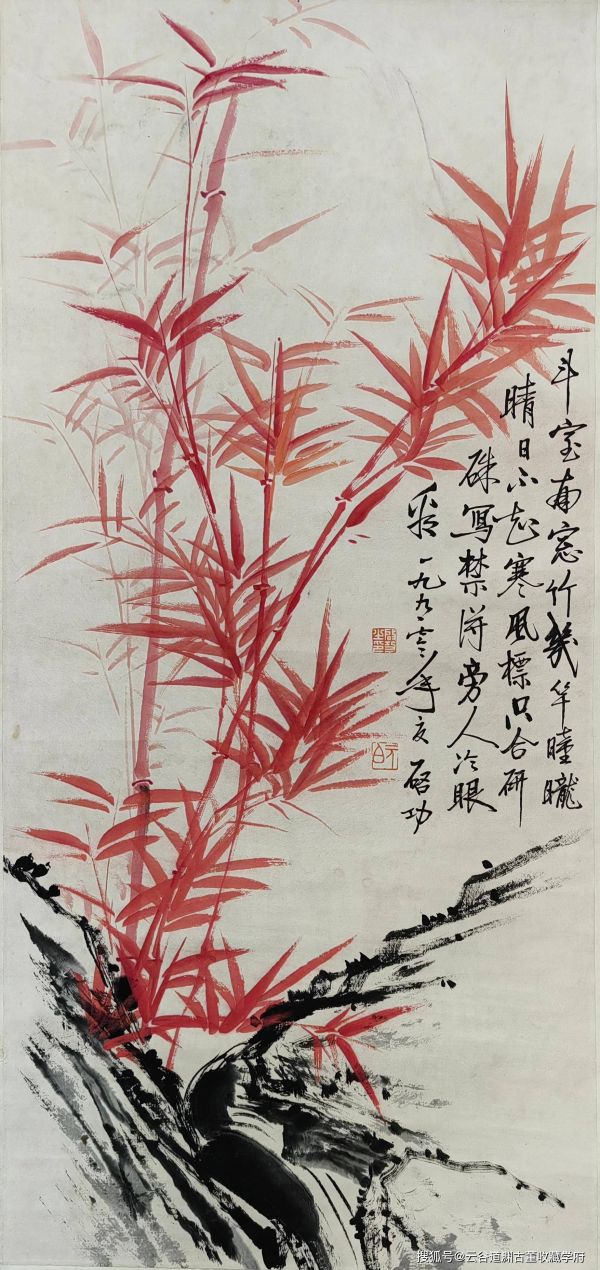 斗室南窗竹幾竿曈曨
晴日不起寒風標只合研
硃寫禁得旁人冷眼
看 一九九零年夏 启功
元白
搜狐号@云谷道渊古董收藏学府